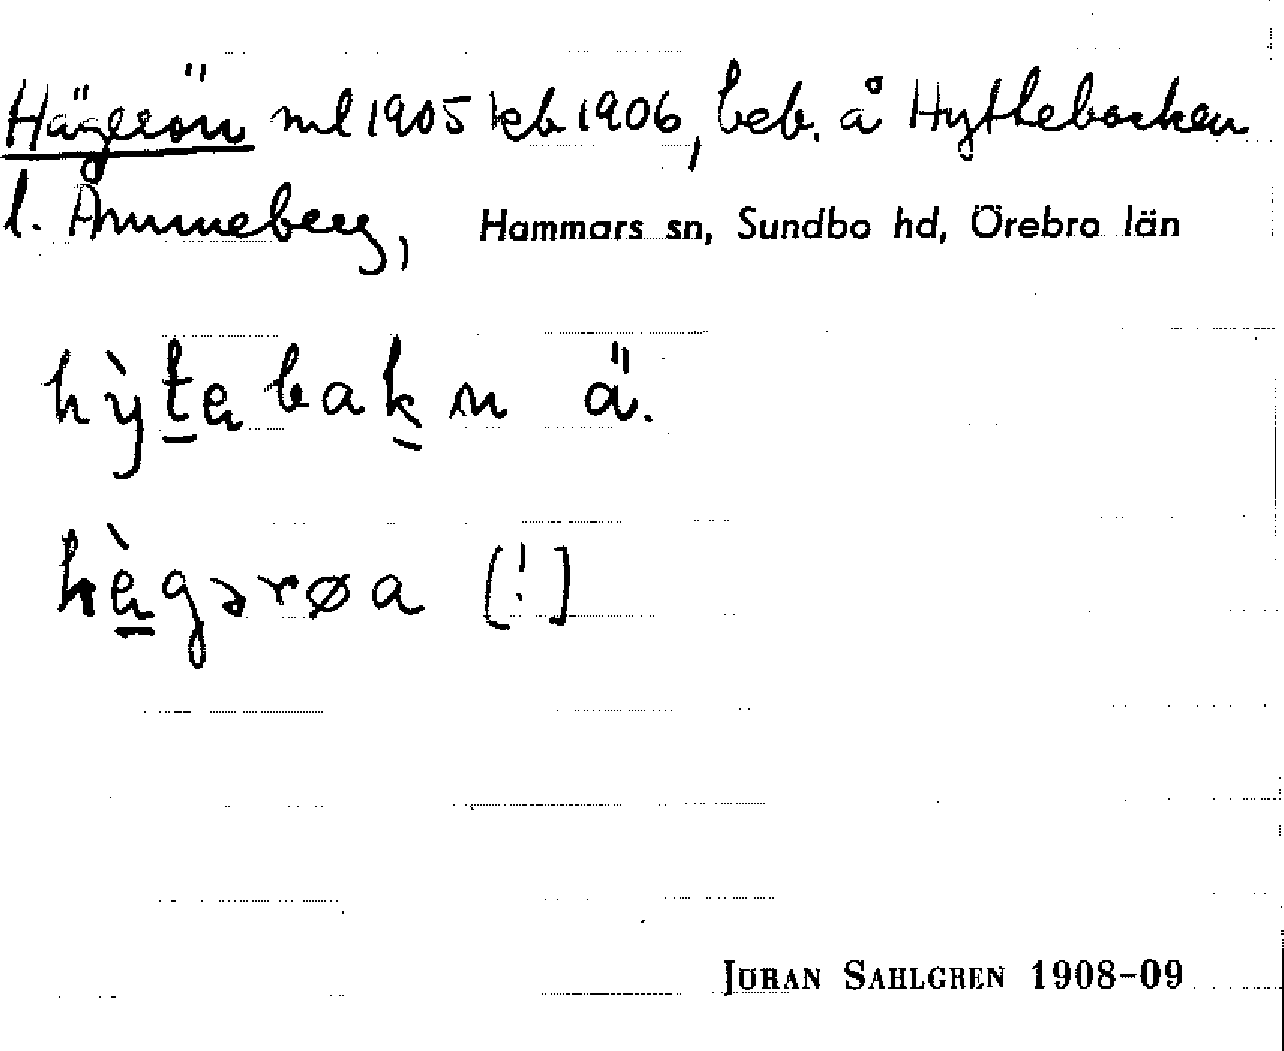 Hägerön ml 1905 kb 1906, beb. å Hyttebacken
l. Ammeberg, Hammars sn, Sundbo hd, Örebro län
hỳta bakn ä.
hàgərøa [!]
JÖRAN SAHLGREN 1908-09